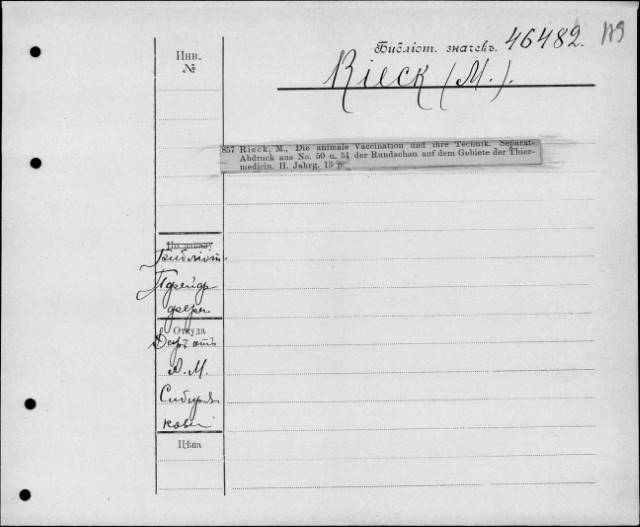 Библіот. значекъ. 46482.
Инв.
№
Rieck (M.).
857 Rieck, M., Die animale Vaccination und ihre Technik. Separat-
Abdruck aus No. 50 u. 51 der Rundschau auf dem Gebiete der Thier-
medicin. II. Jahrg. 13 p.
Библіот.
Откуда
Даръ отъ
А. М.
Сибиря-
кова
Цѣна